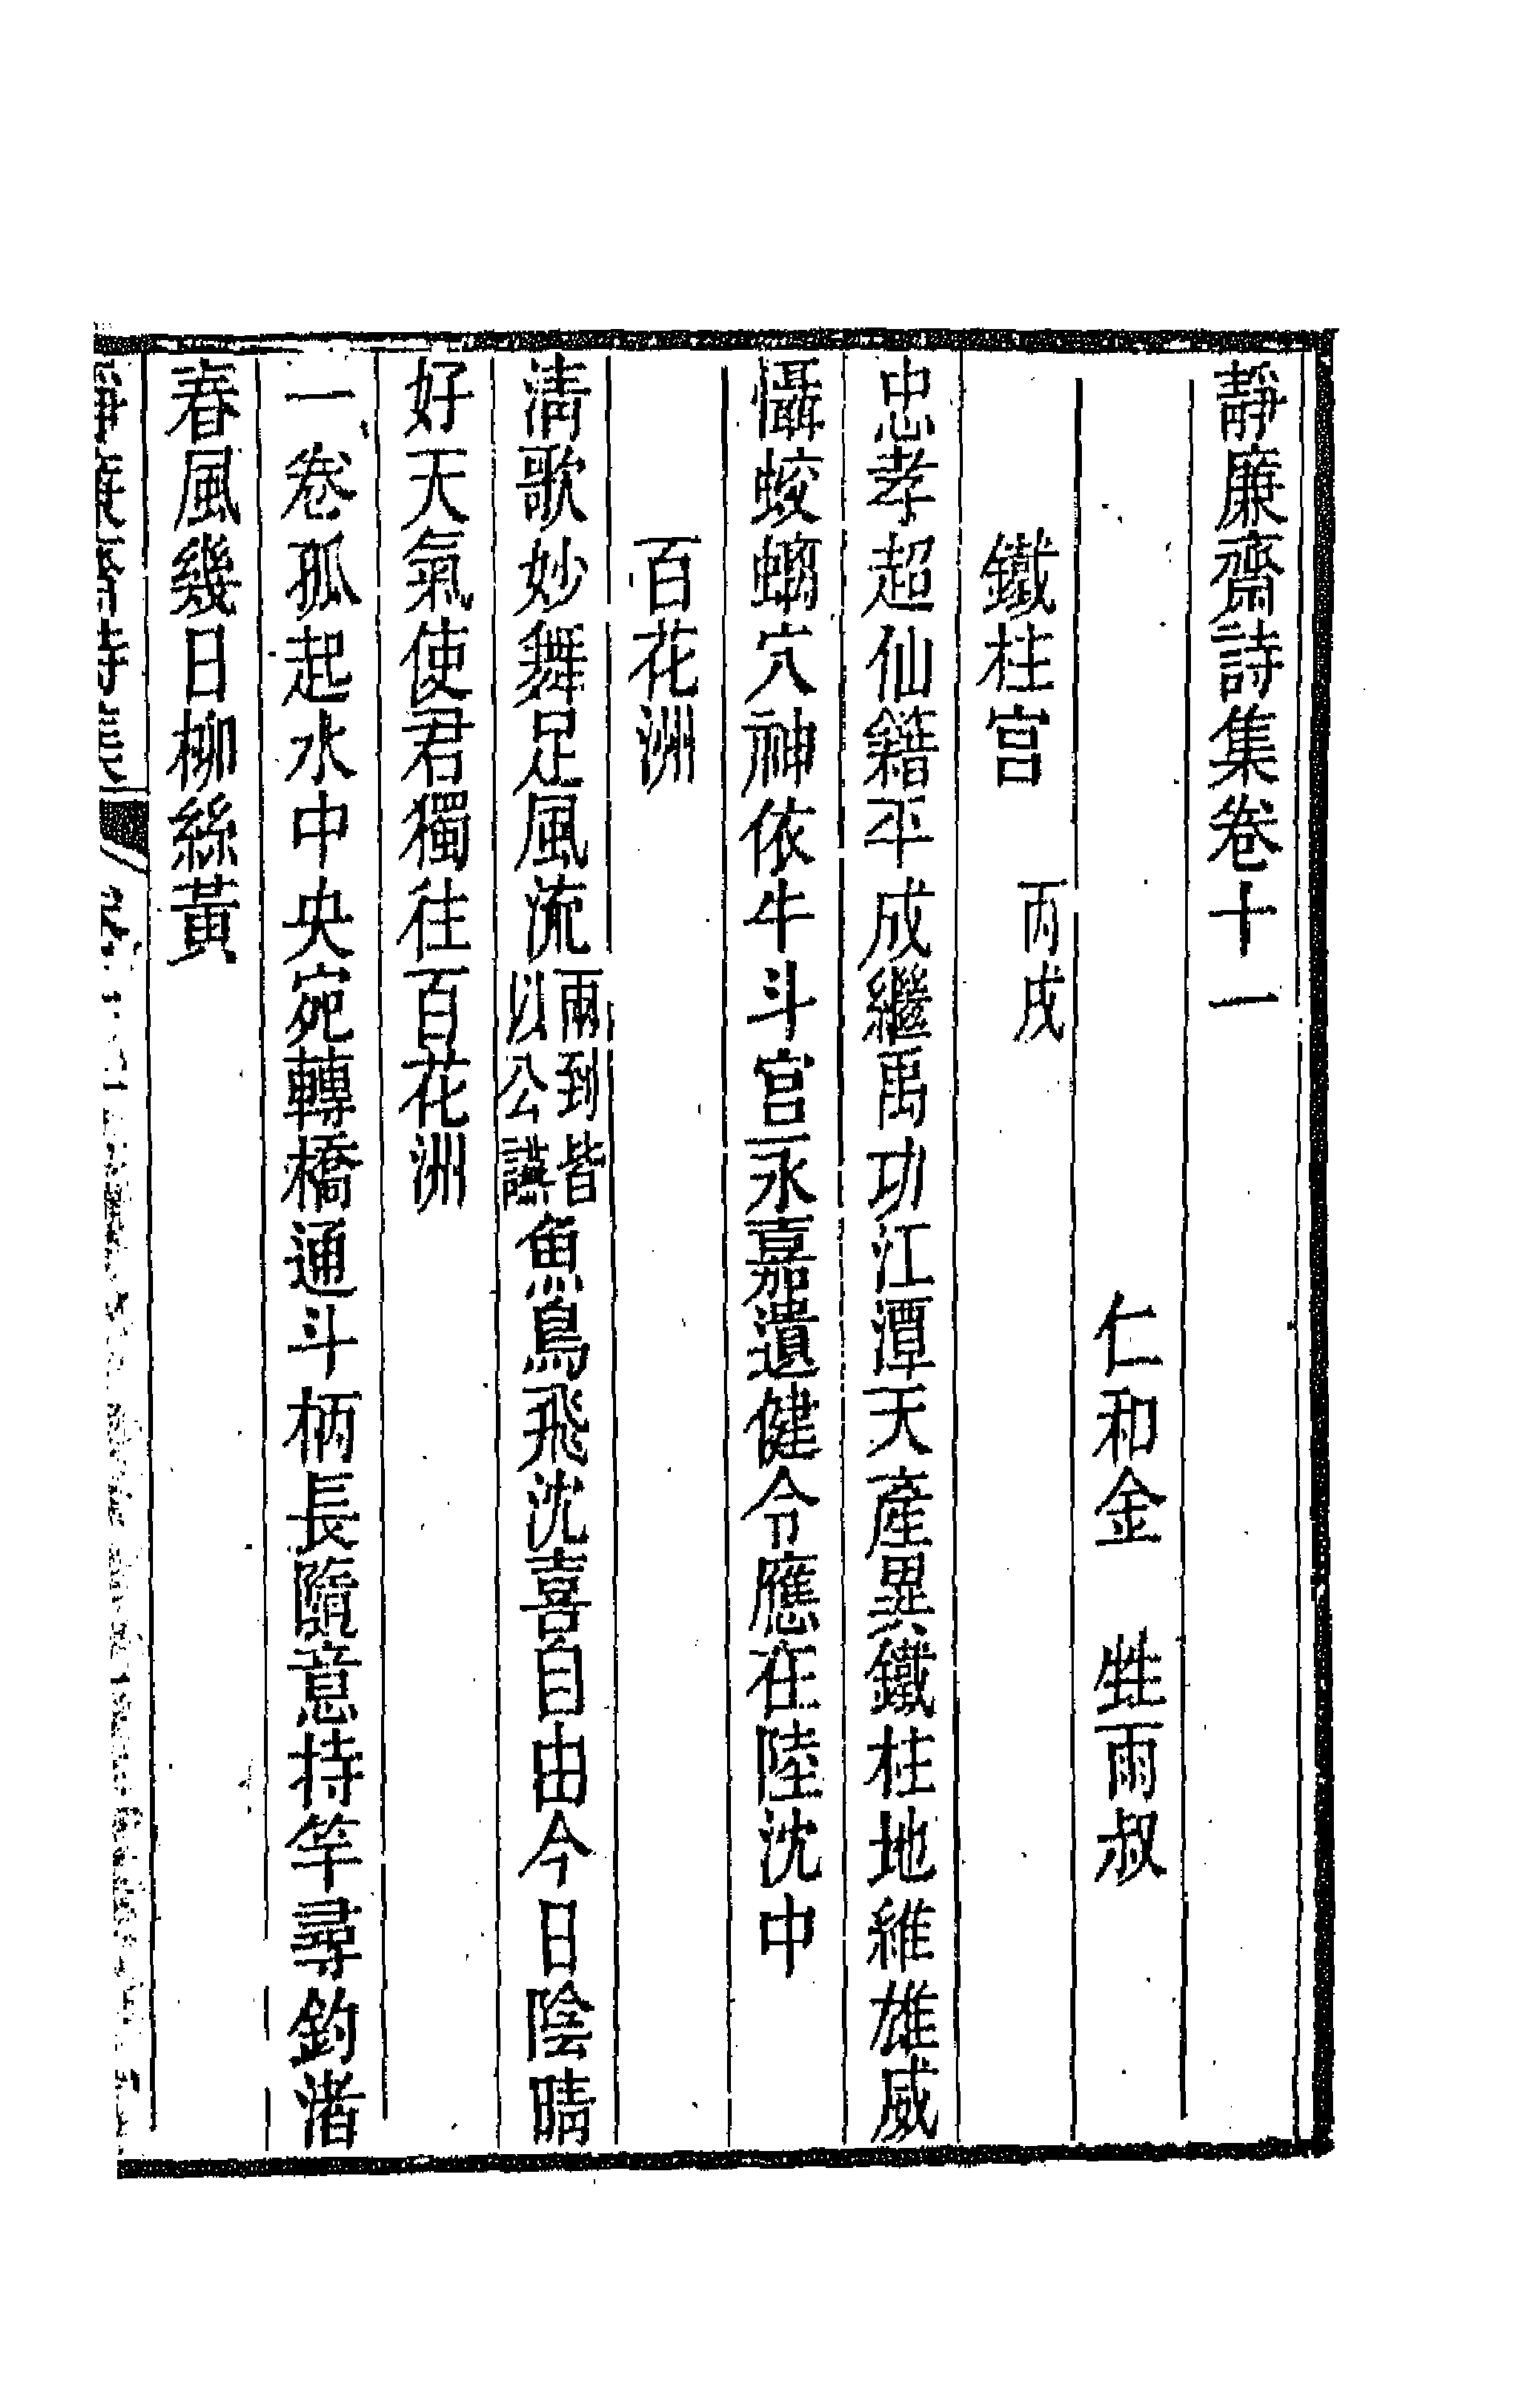 靜廉齋詩集卷十一
仁和金　甡雨叔
鐵柱宫　丙戌
忠孝超仙籍平成繼禹功江潭天產異鐵柱地維雄威
懾蛟螭穴神依牛斗宫永嘉遺健令應在陸沈中
百花洲
淸歌妙舞足風流兩到皆以公讌魚鳥飛沈喜自由今日陰晴
好天氣使君獨往百花洲
一卷孤起水中央宛轉橋通斗柄長隨意持竿尋釣渚
春風幾日柳絲黃